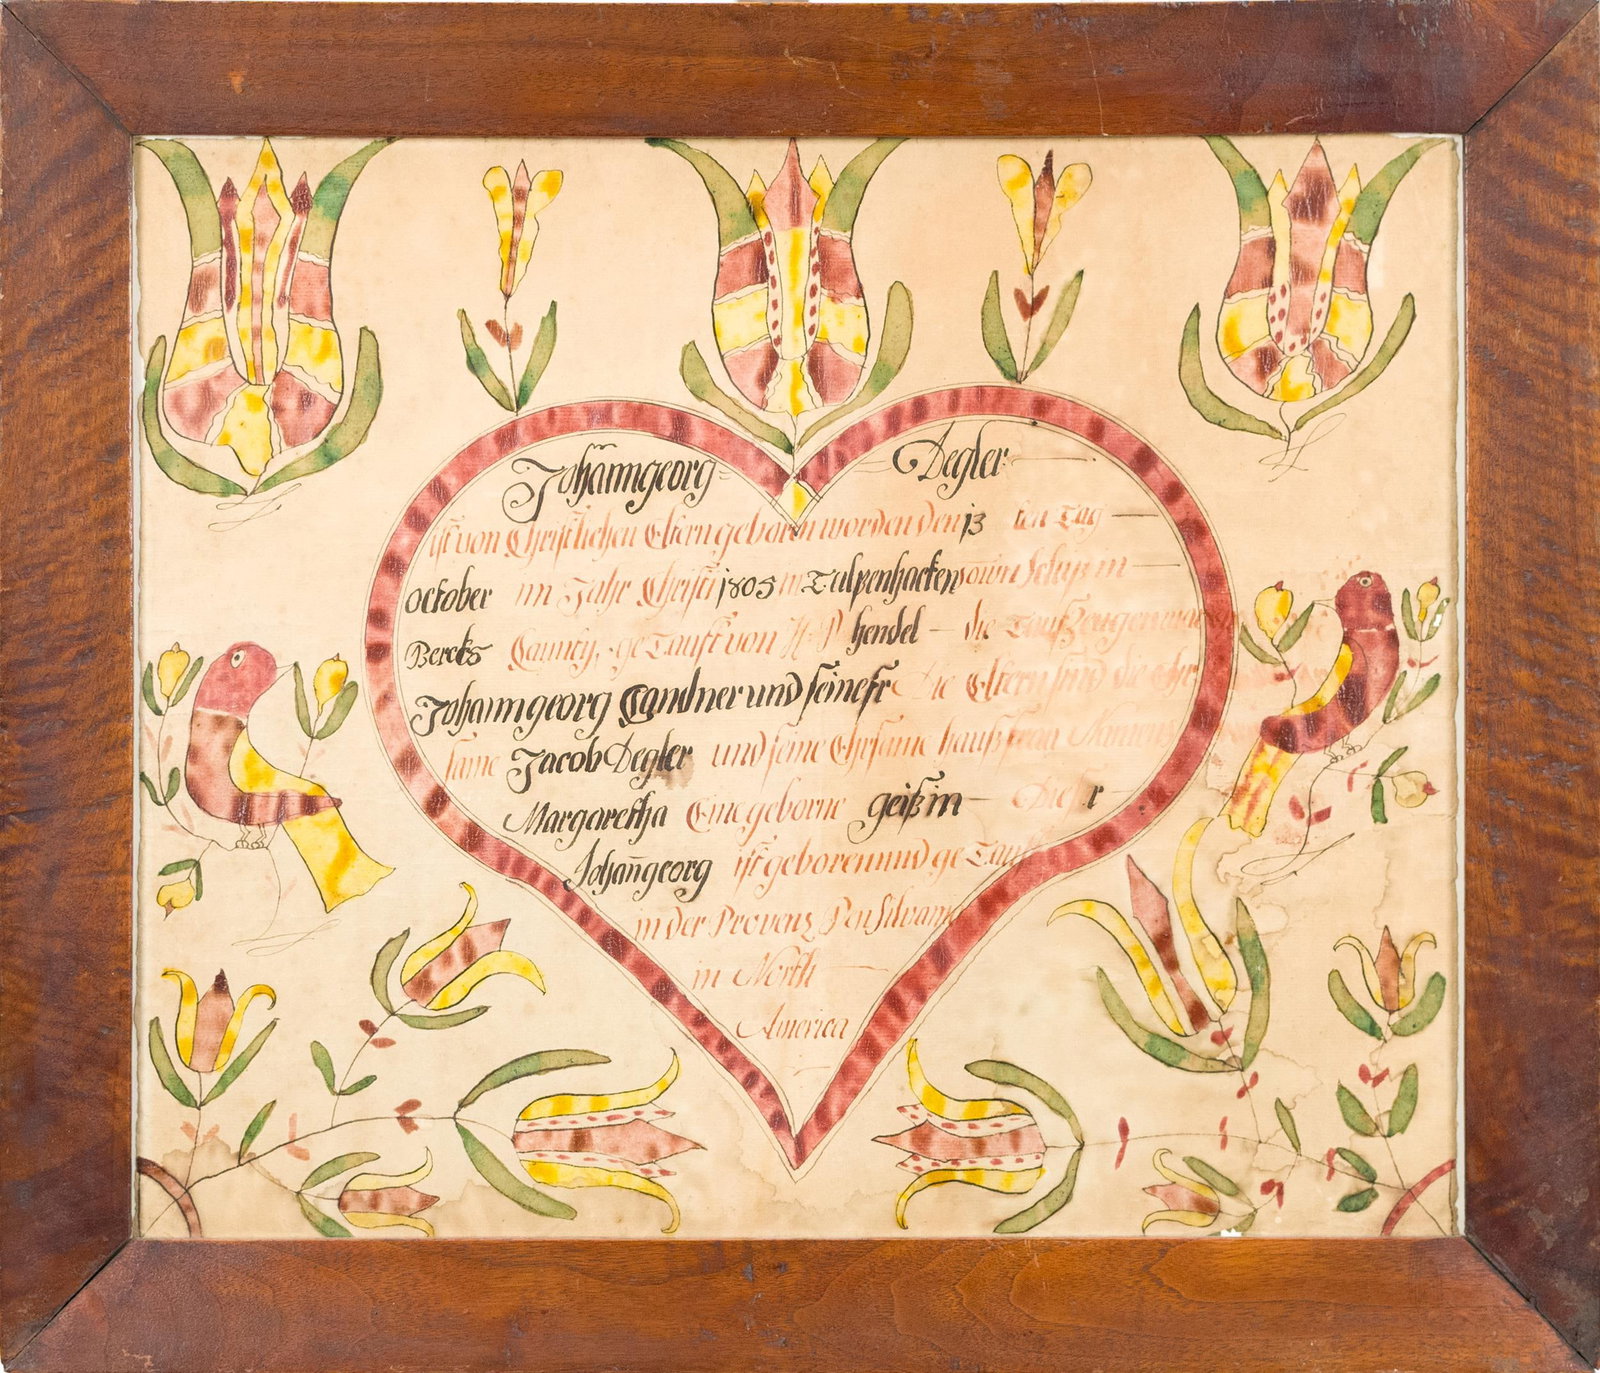 Johanngeorg Degler
ist von Christlichen Eltern geboren worden den 13 ten Tag
october im Jahr Christi 1805 in Tulpenhacken town Schip in
Bercks Caunty, ge Taufft von H P hendel die Taufzeugen waren
Johanngeorg Candner und seine fr Die Eltern sind die Ehr
same Jacob Degler und seine Ehrsame haußfrau Namens
Margaretha Eine geborne geißin Dieser
Johan̄georg ist geboren und ge Taufft
in der Provenz Pensilvania
in North
America